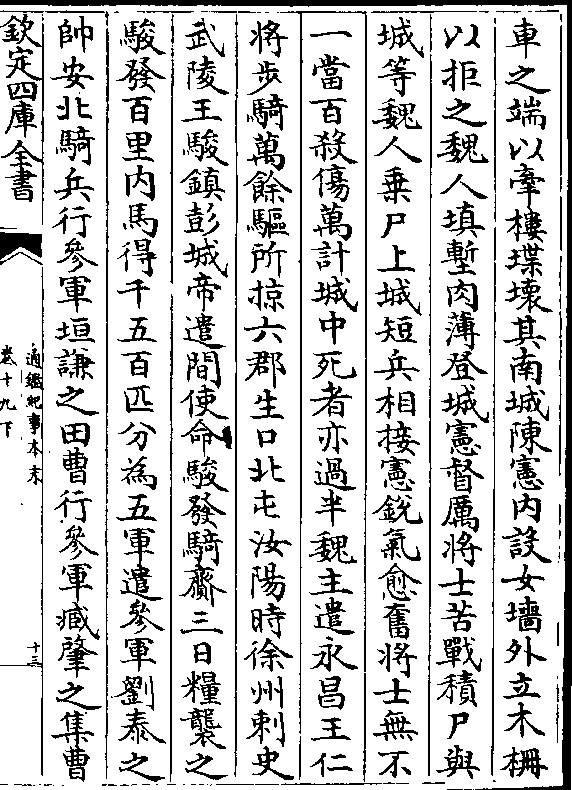 車之端以牽樓堞壞其南城陳憲内設女墻外立木柵
以拒之魏人填塹肉薄登城憲督厲將士苦戰積尸與
城等魏人乗尸上城短兵相接憲鋭氣愈奮將士無不
一當百殺傷萬計城中死者亦過半魏主遣永昌王仁
將步騎萬餘驅所掠六郡生口北屯汝陽時徐州刺史
武陵王駿鎮彭城帝遣間使命駿發騎齎三日糧襲之
駿發百里内馬得千五百匹分為五軍遣參軍劉泰之
帥安北騎兵行參軍垣謙之田曹行參軍臧肇之集曹
欽定四庫全書
通鑑紀事本末
卷十九下
十三